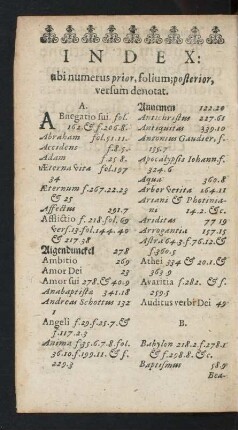 INDEX:
ubi numerus prior, folium; posterior,
versum denotat.
A.
Abnegatio sui. fol.
162. & f. 206.8.
Abraham fol. 51.11.
Accidens f. 8.5.
Adam f. 25 8.
Æterna vita fol. 197
34
Æternum f. 267.22.23
& 25
Affectus 291.7
Afflictio f. 218. fol. 69
vers. 13. fol. 144. 40
& 217 38
Aigendunckel 278
Ambitio 269
Amor Dei 23
Amor sui 278. & 40.9
Anabaptista 341.18
Andreas Schottus 132
1
Angeli f. 29. f. 25.7. &
f. 117.2.3
Anima f. 35.6.7-8. fol.
36.10. f. 199.11. & f.
229.3
Annemen 122.20
Antichristus 227.61
Antiquitas 339.10
Antonius Gaudier. f.
155.7
Apocalypsis Iohann. f.
324.6
Aqua 360.8
Arbor verita 164.11
Ariani & Photinia-
ni 14.2. & c.
Ariditas 77.19
Arrogantia 157.15
Astra 64.3. f. 76.12. &
f. 360.5
Athei 334 & 20.1. &
363.9
Avaritia f. 282. & f.
259.5
Auditus verbi Dei 49
B.
Babylon 218.2. f. 278.1
& f. 298.8. & c.
Baptismus 58.9
Bea-